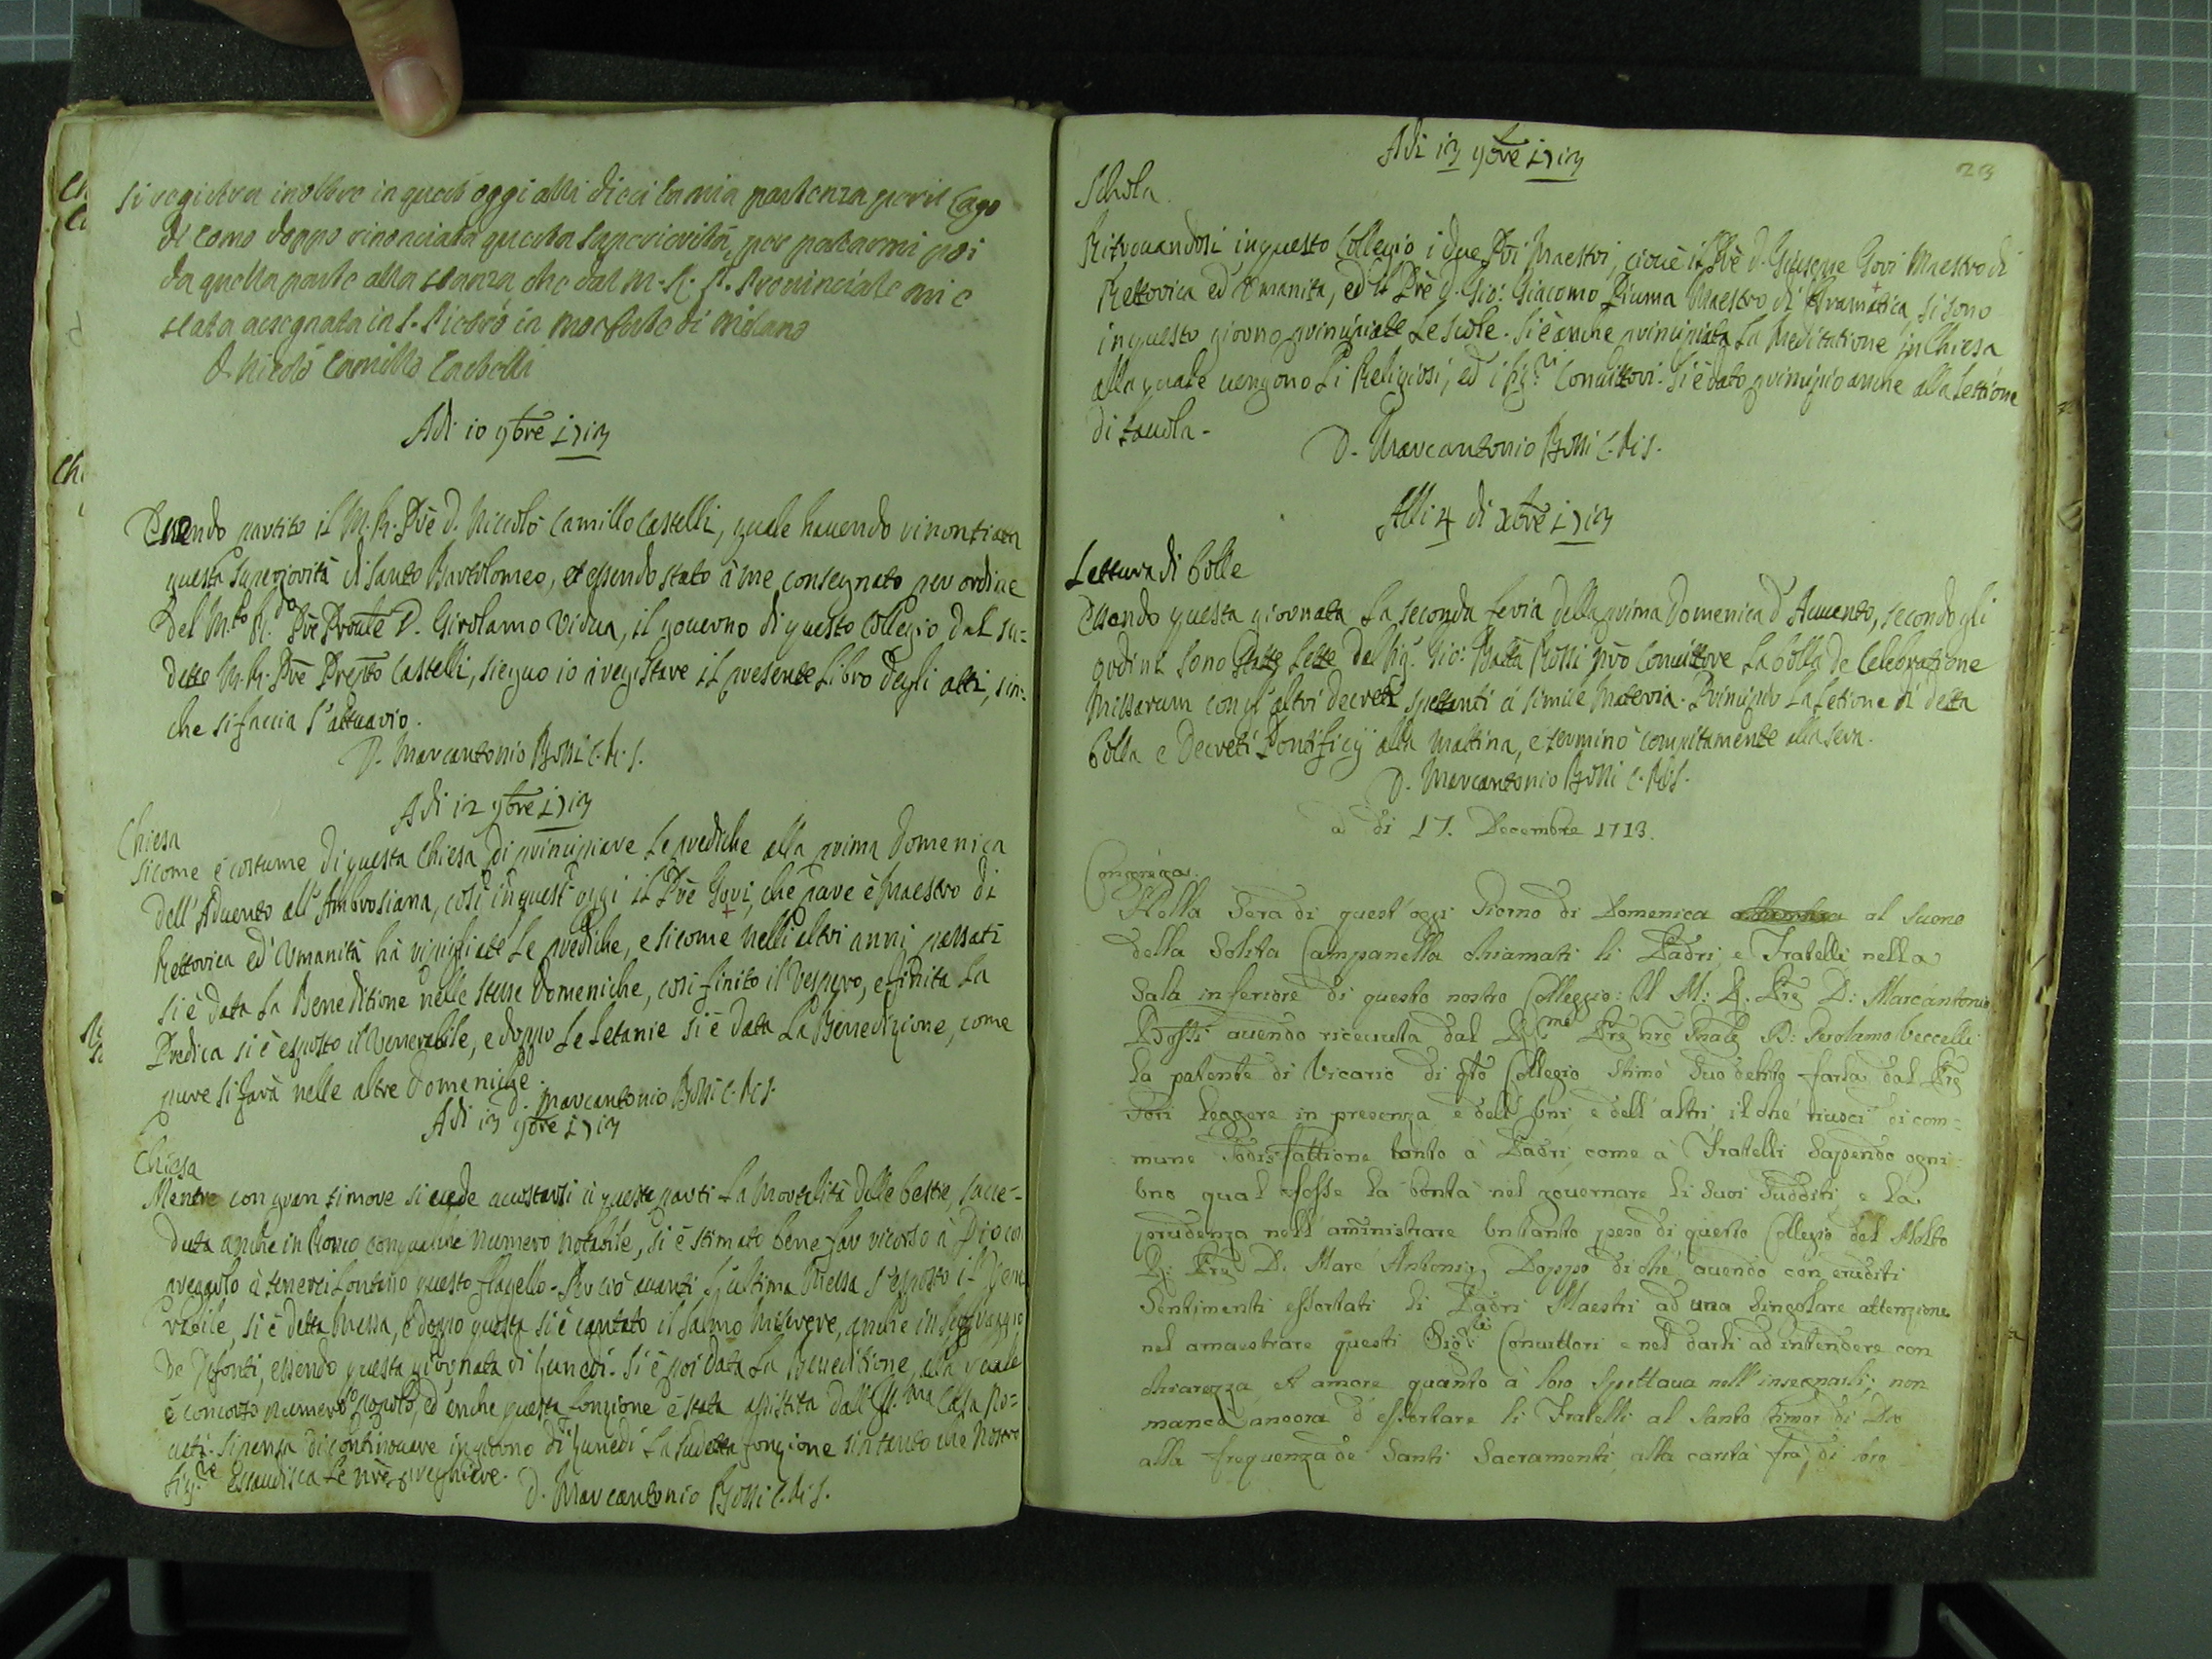 Si registra inoltre in questo oggi alli dieci la mia partenza per il Lago
di Como doppo rinonciata questa Superiorità, per portarmi poi
da quella parte alla stanza che dal M. R. P. Provinciale mi è
stata assegnata in S. Pietro in Monforte di Milano
D. Nicolò Camillo Castelli
Adi 10 9bre 1713
Essendo partito il M. R. Pre D. Niccolò Camillo Castelli, quale hauendo rinontiata
questa Superiorità di Santo Bartolomeo, et essendo stato à me consegnato per ordine
Del M.to R.do Pre Proule D. Girolamo Vidua, il gouerno di questo Collegio dal su=
detto M. R. Pre Prepto Castelli, sieguo io à registrare il presente Libro degli atti, sin=
che si faccia l'attuario.
D. Marcantonio Bossi C. R. S.
Adi 12 9bre 1713
Chiesa
Sicome è costume di questa Chiesa di principiare le prediche alla prima Domenica
dell'Aduento all'Ambrosiana, così in quest'oggi il Pre Govi, che pare è Maestro di
Rettorica ed Umanità hà ripigliate le prediche, e sicome nelli altri anni passati
si è data la Beneditione nelle stesse Domeniche, così finito il Vespero, e finita la
Predica si è esposto il Venerabile, e doppo le Letanie si è data la Benedizione, come
pure si farà nelle altre Domeniche.
D. Marcantonio Bossi C. R. S.
Adi 13 9bre 1713
Chiesa
Mentre con gran timore si uede accostarsi à queste parti la Mortalità delle bestie, succe=
duta anche in con qualche numero notabile, si è stimato bene far ricorso à Dio con
pregarlo à tenerci lontano questo flagello. Per ciò auanti l'ultima Messa s'esposto il Vene
rabile, si è detta Messa, e doppo questa si è cantato il Salmo Miserere, anche in suffraggio
de Defonti, essendo questa giornata di Lunedì. Si è poi data la Beneditione, alla quale
è concorso numeroso popolo, ed anche questa fonzione è stata assistita dall'Ill.ma Casa
Si pensa di continouare in ogni di Lunedì la sudetta fonzione sin tanto che Nostro
Sig.re essaudisca le nre preghiere. D. Marcantonio Bossi C. R. S.
23
Adi 13 9bre 1713
Schola.
Ritrouandosi in questo Collegio i due Pri Maestri, ciouè il Pre D. Giuseppe Govi Maestro di
Rettorica ed Umanità, ed il Pre D. Gio: Giacomo Piuma Maestro di Gramatica, si sono
in questo giorno principiate le Scole. Si è anche principiata la Meditatione in Chiesa
alla quale uengono li Religiosi, ed i Sig.ri Conuittori. Si è dato principio anche alla Lettione
di tauola.
D. Marcantonio Bossi C. R. S.
Alli 4 di Xbre 1713
Lettura di bolle
Essendo questa giornata la seconda feria della prima Domenica d'Auuento, secondo gli
ordini sono state lette dal Sig. Gio: Batta Rossi nro Conuittore la bolla de Celebratione
Missarum con gl'altri decreti spettanti à simile Materia. Principiò la letione di detta
bolla e Decreti Pontificij alla mattina, e terminò compitamente alla sera.
D. Marcantonio Bossi C. R. S.
a di 17. Decembre 1713.
Congrega.
Nella Sera di quest'oggi Giorno di Domenica al suono
della solita Campanella chiamati li Padri, e Fratelli nella
Sala inferiore di questo nostro Colleggio: Il M: R. Pre D: Marcantonio
Bossi auendo riceuuta dal R.mo Pre nro Gnale D: Gerolamo Ceccelli
la patente di Vicario di qto Collegio stimò suo debito farla dal Pre
Gori leggere in presenza, e dell'uni e dell'altri, il che riusci di com=
mune sodisfattione tanto à Padri come à Fratelli sapendo ogni
uno qual fosse la bontà nel gouernare li suoi sudditi e la
prudenza nell'amministrare un tanto peso di questo Collegio del Molto
R: Pre D. Marc'Antonio, Doppo di che auendo con eruditi
sentimenti essortati li Padri Maestri ad una singolare attenzione
nel amaestrare questi Sig.ri Conuittori e nel darli ad intendere con
chiarezza et amore quanto à loro spettaua nell'insegnarli; non
mancò ancora d'essortare li Fratelli al santo timor di Dio
alla frequenza de Santi Sacramenti, alla carità frà di loro